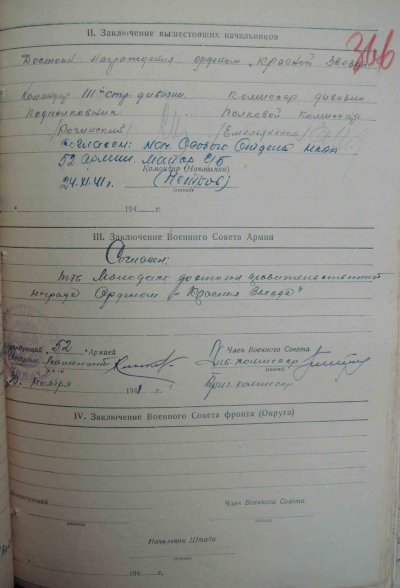 II. Заключение вышестоящих начальников
346
Достоин награждения орденом „Красной Звезды"
Командир III стр. дивизии. Комиссар дивизии
Подполковник Полковой комиссар
(Рогинский) (Емельяненко)
Согласен: нач Особого Отдела НКВД
52 армии майор
Командир (Начальник)
24.XI.41г.
(подпись)
194 г.
III. Заключение Военного Совета Армии
Согласен:
достоин правительственной
награды Орденом „Красная Звезда"
52 Армией Член Военного Совета
Див. комиссар
(подпись)
ноября 1941 г. Бриг. комиссар
IV. Заключение Военного Совета фронта (Округа)
Член Военного Совета
(подпись) (подпись)
Начальник Штаба
(подпись)
194 г.